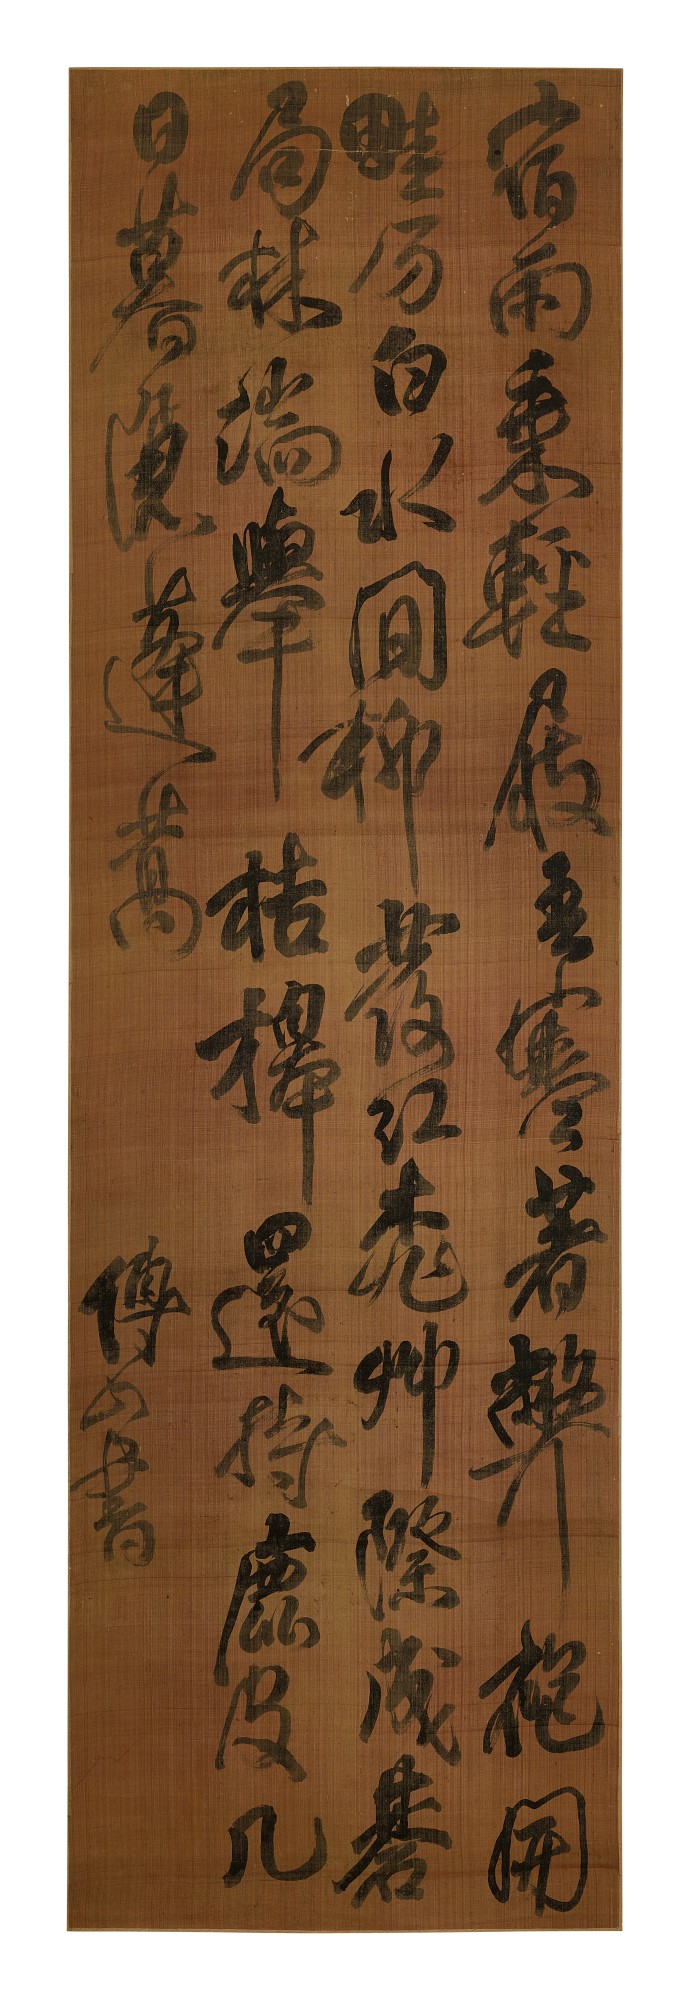 宿雨乘輕屐春寒著弊袍開
畦分白水間柳發紅桃艸際成碁
局林端舉桔槹還持鹿皮几
日暮隱蓬蒿
傅山書